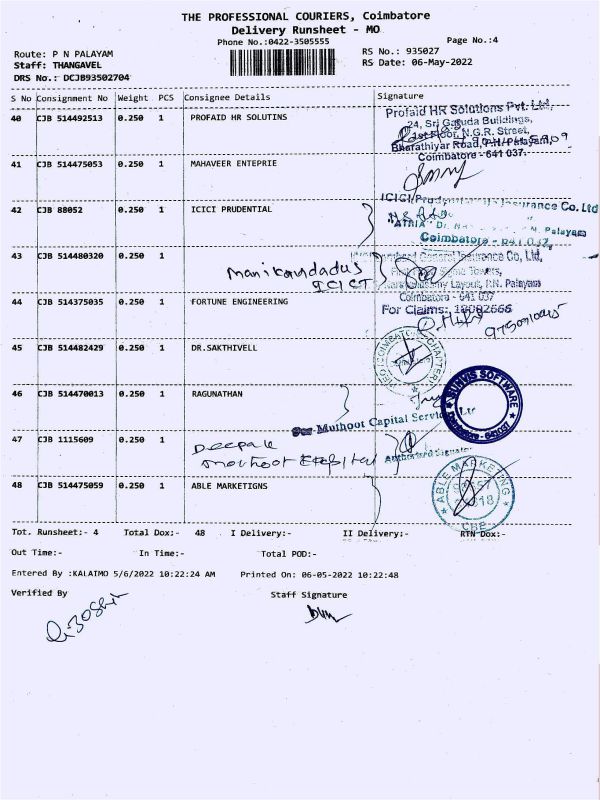 THE PROFESSIONAL COURIERS, Coimbatore
Delivery Runsheet - MO
Phone No.:0422-3505555
Page No.:4
Route: P N PALAYAM
RS No.: 935027
Staff: THANGAVEL
RS Date: 06-May-2022
DRS No.: DCJB93502704
S No Consignment No Weight PCS Consignee Details Signature
40 CJB 514492513 0.250 1 PROFAID HR SOLUTINS
Profaid HR Solutions Pvt. Ltd,
24, Sri Garuda Buildings,
N.G.R. Street,
Bharathiyar Road, P.N. Palayam,
Coimbatore - 641 037.
41 CJB 514475053 0.250 1 MAHAVEER ENTEPRIE
42 CJB 88052 0.250 1 ICICI PRUDENTIAL
Insurance Co. Ltd
N. Palayam
Coimbatore - 641 037.
43 CJB 514480320 0.250 1
General Insurance Co, Ltd,
Towers,
Layout, P.N. Palayam
Coimbatore - 641 037
For Claims: 18002666
Manikandadus
ICICI
44 CJB 514375035 0.250 1 FORTUNE ENGINEERING
45 CJB 514482429 0.250 1 DR.SAKTHIVELL
46 CJB 514470013 0.250 1 RAGUNATHAN
SOFTWARE
Coimbatore - 641037
Muthoot Capital Servic Ltd
47 CJB 1115609 0.250 1
Deepak
Authorised Signatory
48 CJB 514475059 0.250 1 ABLE MARKETIGNS
ABLE MARKETING
CBE
Tot. Runsheet:- 4 Total Dox:- 48 I Delivery:- II Delivery:- RTN Dox:-
Out Time:- In Time:- Total POD:-
Entered By :KALAIMO 5/6/2022 10:22:24 AM Printed On: 06-05-2022 10:22:48
Verified By Staff Signature